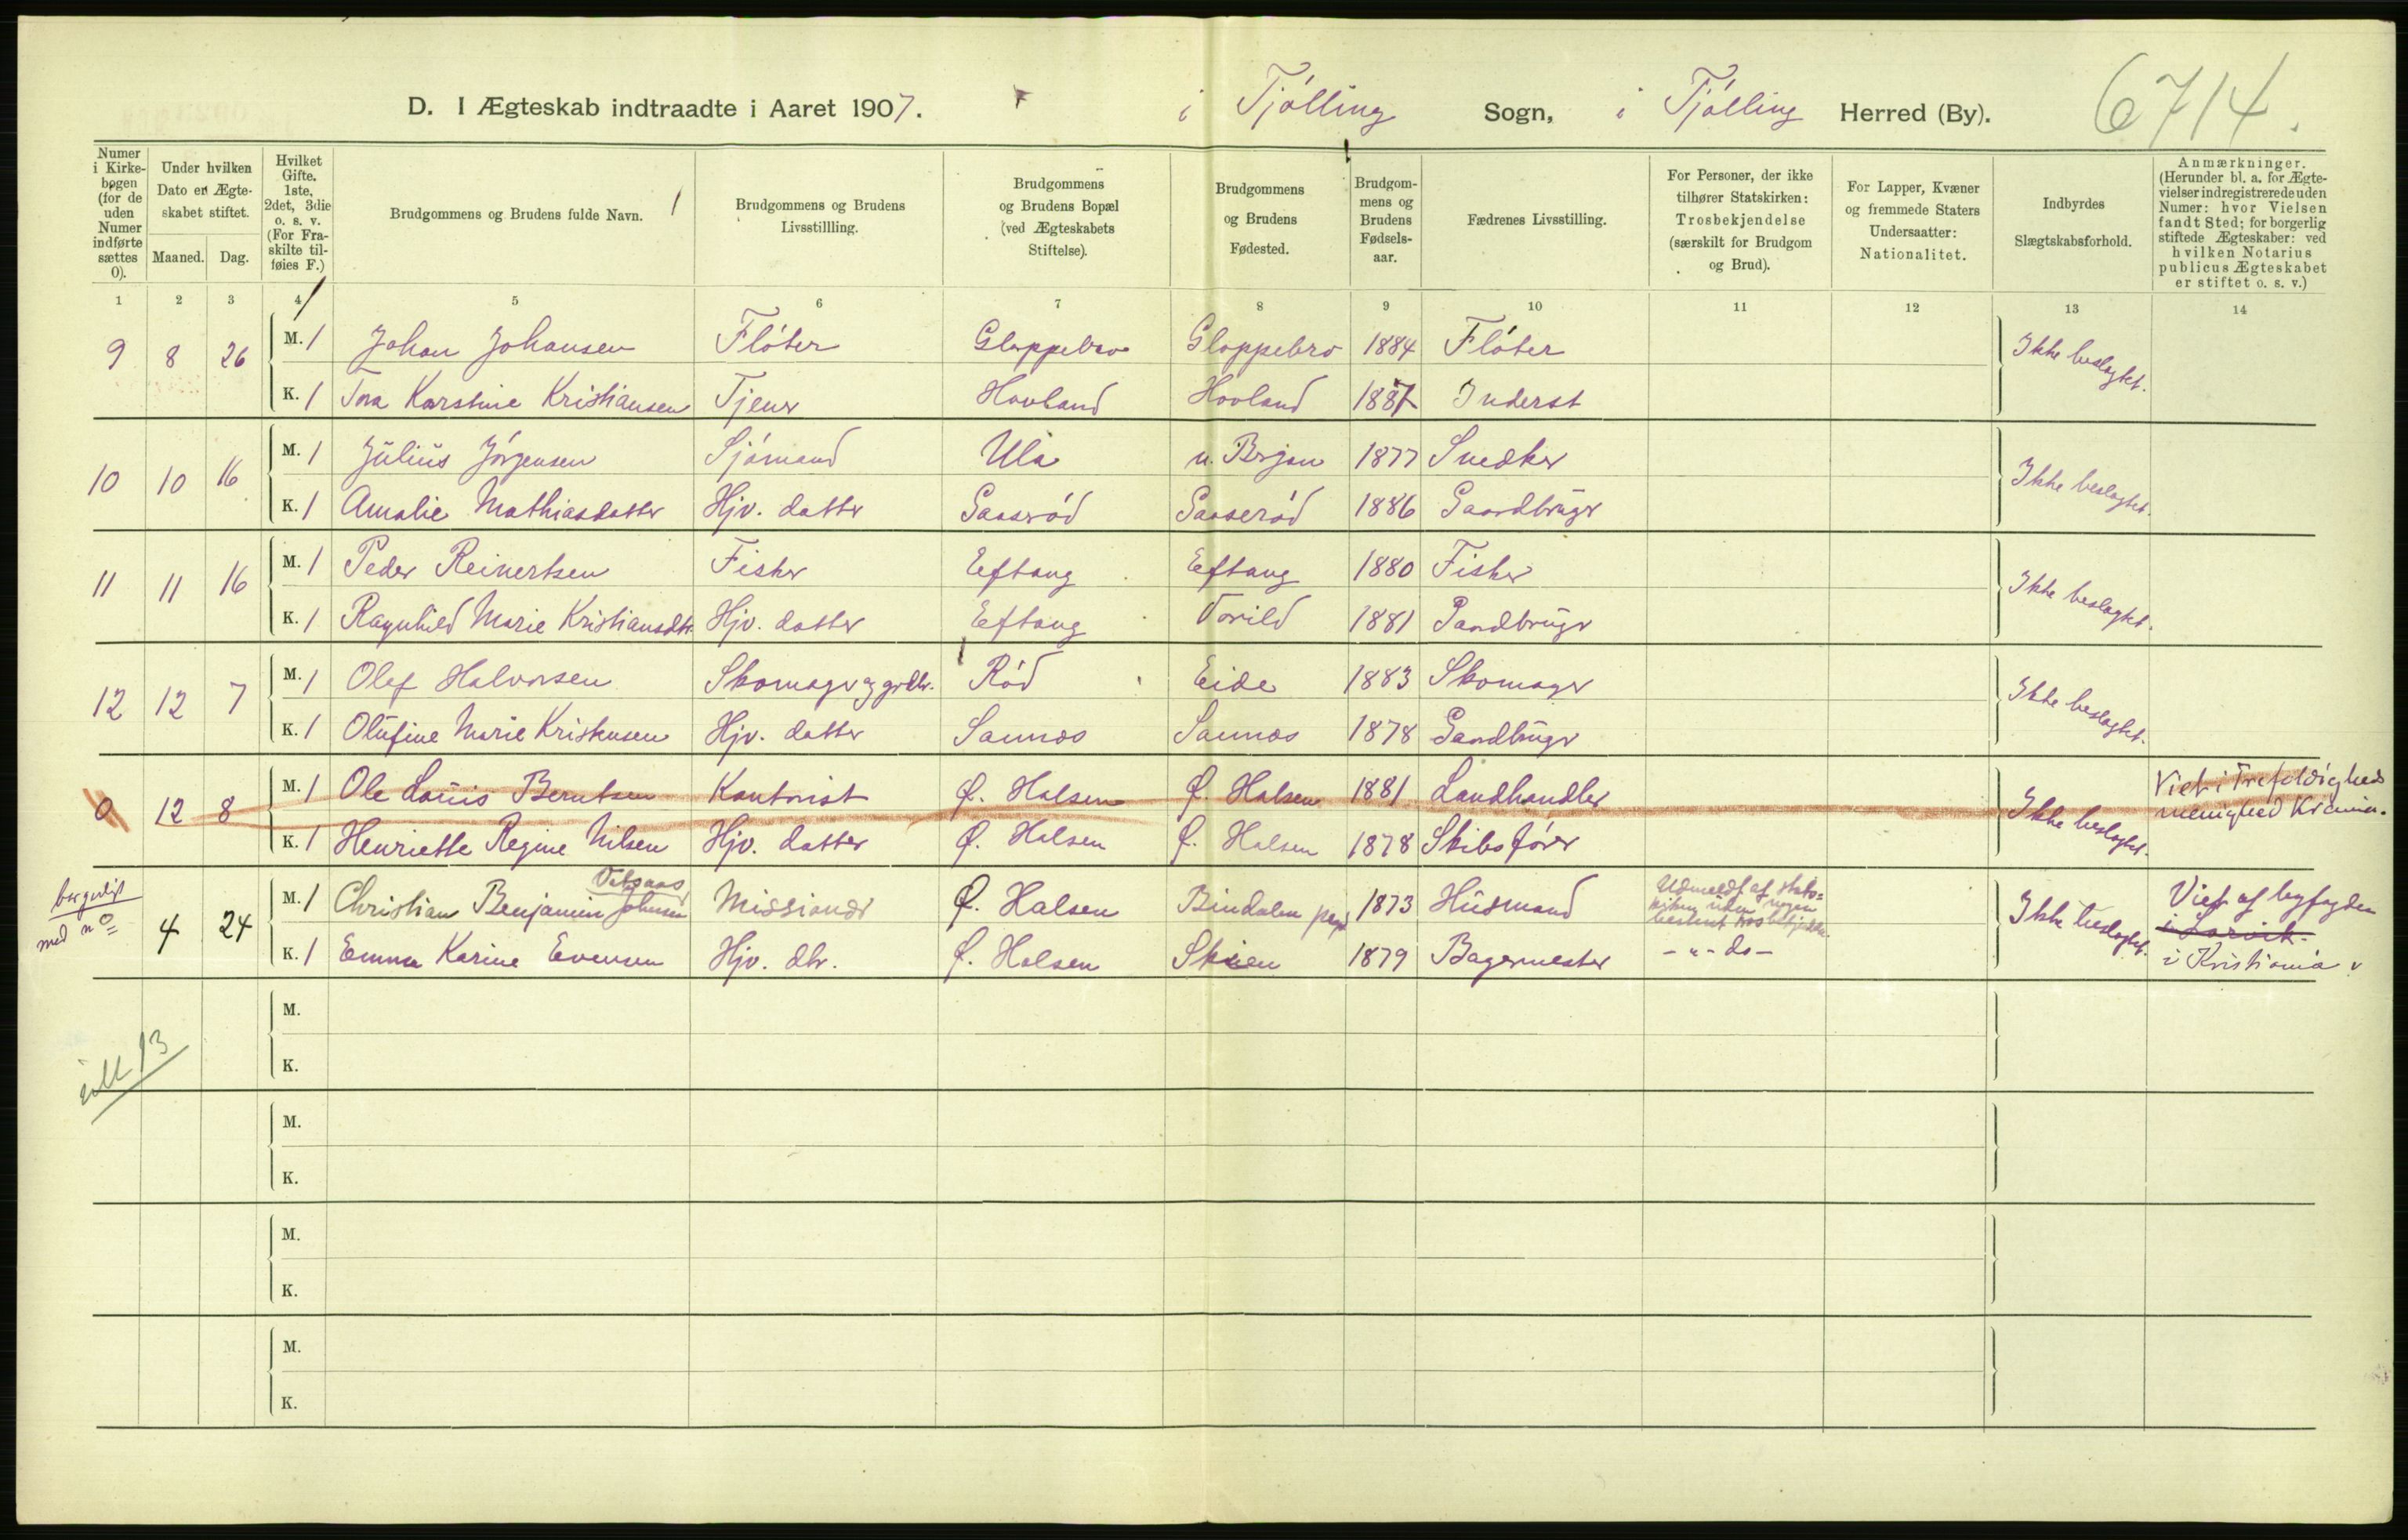 D. I Ægteskab indtraadte i Aaret 1907. i Tjølling Sogn, i Tjølling Herred (By). 6714.
Numer i Kirkebogen (for de uden Numer indførte sættes 0).
Under hvilken Dato er Ægteskabet stiftet.
Maaned. Dag.
Hvilket Gifte. 1ste, 2det, 3die o. s. v. (For Fraskilte tilføies F.)
Brudgommens og Brudens fulde Navn.
Brudgommens og Brudens Livsstillling.
Brudgommens og Brudens Bopæl (ved Ægteskabets Stiftelse).
Brudgommens og Brudens Fødested.
Brudgommens og Brudens Fødselsaar.
Fædrenes Livsstilling.
For Personer, der ikke tilhører Statskirken: Trosbekjendelse (særskilt for Brudgom og Brud).
For Lapper, Kvæner og fremmede Staters Undersaatter: Nationalitet.
Indbyrdes Slægtskabsforhold.
Anmærkninger. (Herunder bl. a. for Ægtevielser indregistrerede uden Numer: hvor Vielsen fandt Sted; for borgerlig stiftede Ægteskaber: ved hvilken Notarius publicus Ægteskabet er stiftet o. s. v.)
1 2 3 4 5 6 7 8 9 10 11 12 13 14
9 8 26 M. 1 Johan Johansen Fløter Gloppebro Gloppebro 1884 Fløter Ikke beslægtet.
K. 1 Tora Karstine Kristiansen Tjener Hovland Hovland 1887 Inderst
10 10 16 M. 1 Julius Jørgensen Sjømand Ula n. Brjan 1877 Snedker Ikke beslægtet.
K. 1 Amalie Mathiasdatter Hjv. datter Gaaserød Gaaserød 1886 Gaardbruger
11 11 16 M. 1 Peder Reinertsen Fisker Eftang Eftang 1880 Fisker Ikke beslægtet.
K. 1 Ragnhild Marie Kristiansdtr. Hjv. datter Eftang Torild 1881 Gaardbruger
12 12 7 M. 1 Olef Halvorsen Skomager og grdbr. Rød Eide 1883 Skomager Ikke beslægtet.
K. 1 Olufine Marie Kristensen Hjv. datter Sannes Sannes 1878 Gaardbruger
0 12 8 M. 1 Ole Louis Berntsen Kontorist Ø. Halsen Ø. Halsen 1881 Landhandler Ikke beslægtet. Viet i Trefoldigheds menighed Kr.ania.
K. 1 Henriette Regine Nilsen Hjv. datter Ø. Halsen Ø. Halsen 1878 Skibsfører
borgerligt med no 4 24 M. 1 Christian Benjamin Johnsen Missionær Ø. Halsen Bindalen 1873 Husmand Udmeldt af statskirken uden nogen bestemt trosbekjendelse. Ikke beslægtet. Viet af byfogden i Larvik. i Kristiania
K. 1 Emma Karine Evensen Hjv. dtr. Ø. Halsen Skien 1879 Bagermester -"- do -
M.
K.
13
M.
K.
M.
K.
M.
K.